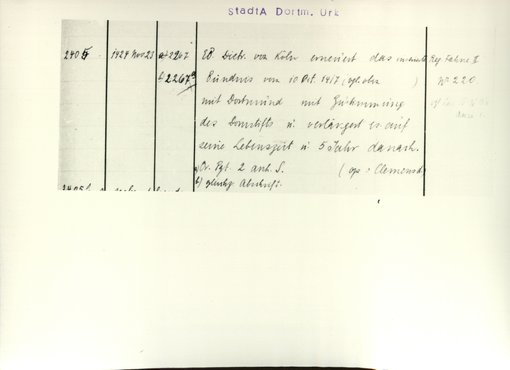 StadtA Dortm. Urk
2405 1424 Nov 23 a) 2267 EB. Dietr. von Köln erneuert das Reg. Fahne II
b) 2267a Bündnis vom 10 Okt. 1417 (vgl oben ) No 220.
mit Dortmund mit Zustimmung
des Domstifts u verlängert es auf
seine Lebenszeit u 5 Jahr danach.
a) Or. Pgt. 2 anh. S.
b) gleichz. Abschrift.